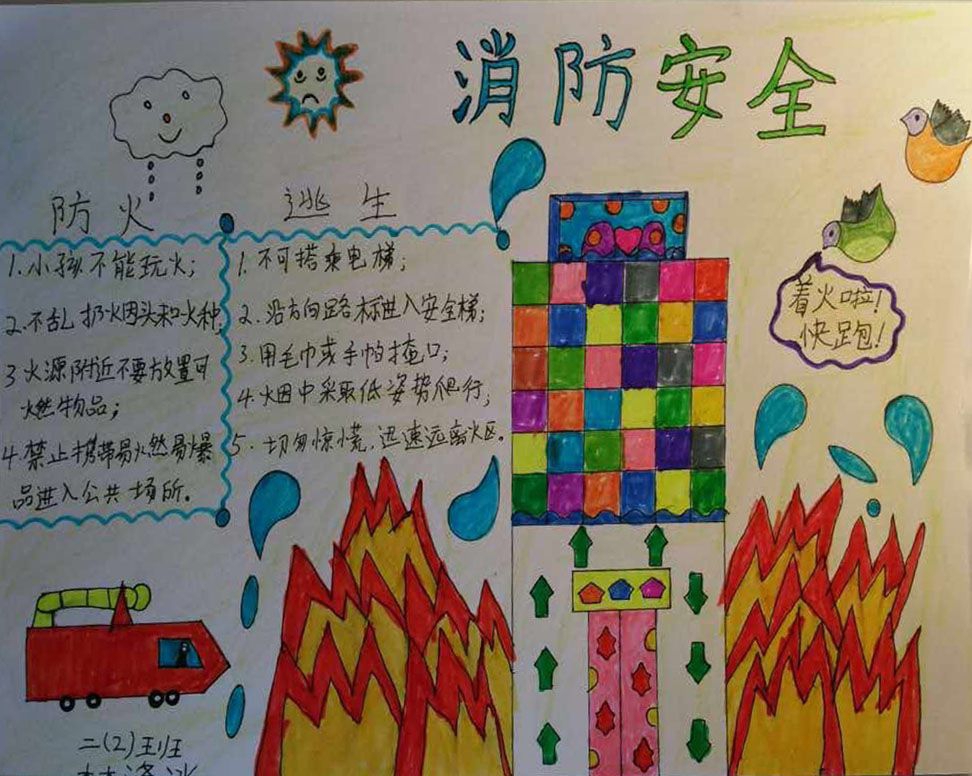 消防安全
防火
1.小孩不能玩火;
2.不乱扔火因头和火种
3火源附近不要放置可
燃物品;
4.禁止携带易燃易爆
品进入公共场所。
逃生
1.不可搭乘电梯;
2.沿方向路标进入安全梯;
3.用毛巾或手帕掩口;
4.烟中采取低姿势爬行;
5.切勿惊慌,迅速远离火区。
着火啦!
快跑!
二(2)班